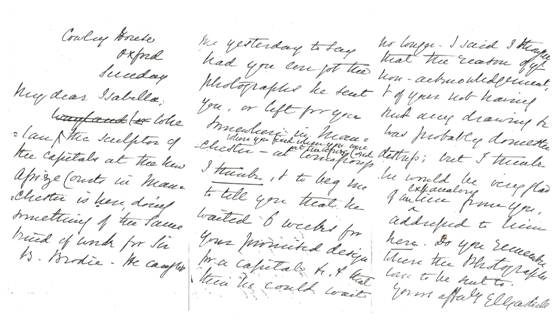 Cowley House
Oxford
Sunday
My dear Isabella,
Whelan
= lan, the sculptor of
the Capitals at the new
Assize Courts in Man-
chester is here doing
something of the same
kind of work for Sir
B. Brodie. He came to
me yesterday to say
had you ever got the
photographs he sent
you, or left for you
somewhere in Man-
when you
chester
I think, & to beg me
to tell you that he
waited 6 weeks for
your promised design
for a capital &c, & that
then he could wait
no longer. I said I thought
that the reason of yr
non-acknowledgement,
& of your not having
sent any drawing &c
was probably domestic
distress; but I think
he would be very glad
explanatory
of a line from you,
addressed to him
here. Do you remember
where the Photographs
were to be sent to.
Yours affly E C Gaskell